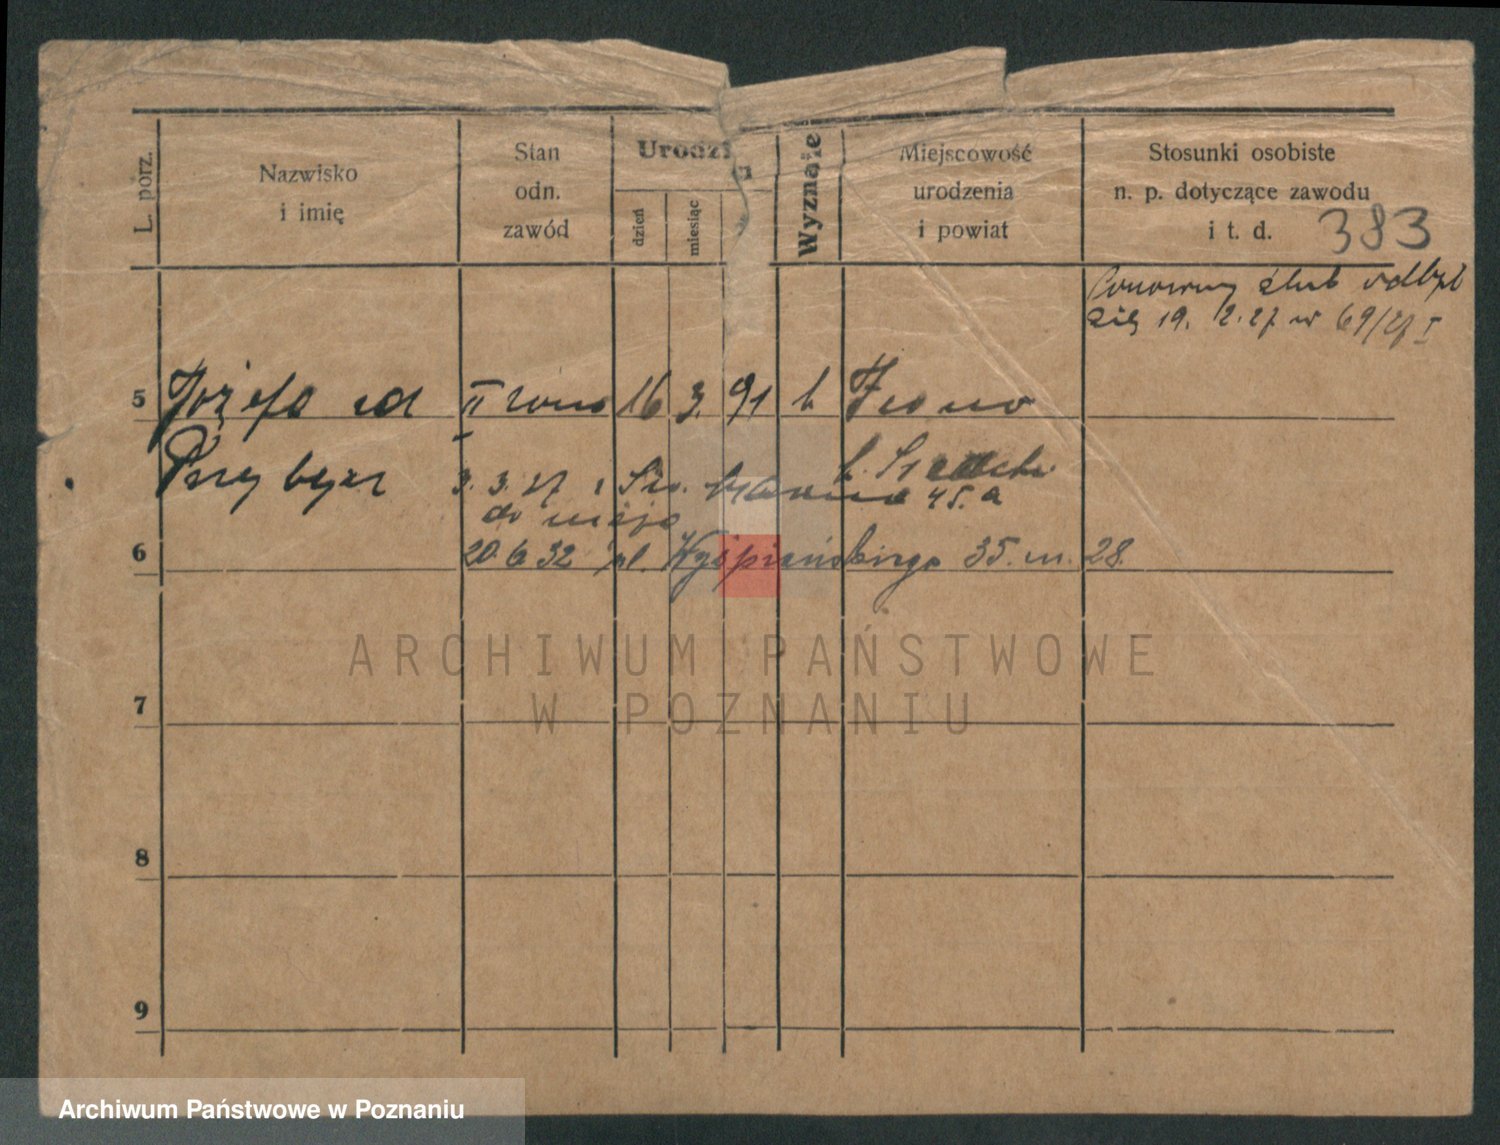 L. porz.
Nazwisko
i imię
Stan
odn.
zawód
Urodzi
dzień
miesiąc
Wyznanie
Miejscowość
urodzenia
i powiat
Stosunki osobiste
n. p. dotyczące zawodu
i t. d.
383
Ponowny ślub odbył
się 19. 2.27 w 69/27 I
5
Józefa
II 16 3. 91
Przybysz
3. 3. 27
45.a
do męża
6
20.6 32 pl. Wyspiańskiego 35. m. 28.
7
8
9
ARCHIWUM PAŃSTWOWE
W POZNANIU
Archiwum Państwowe w Poznaniu